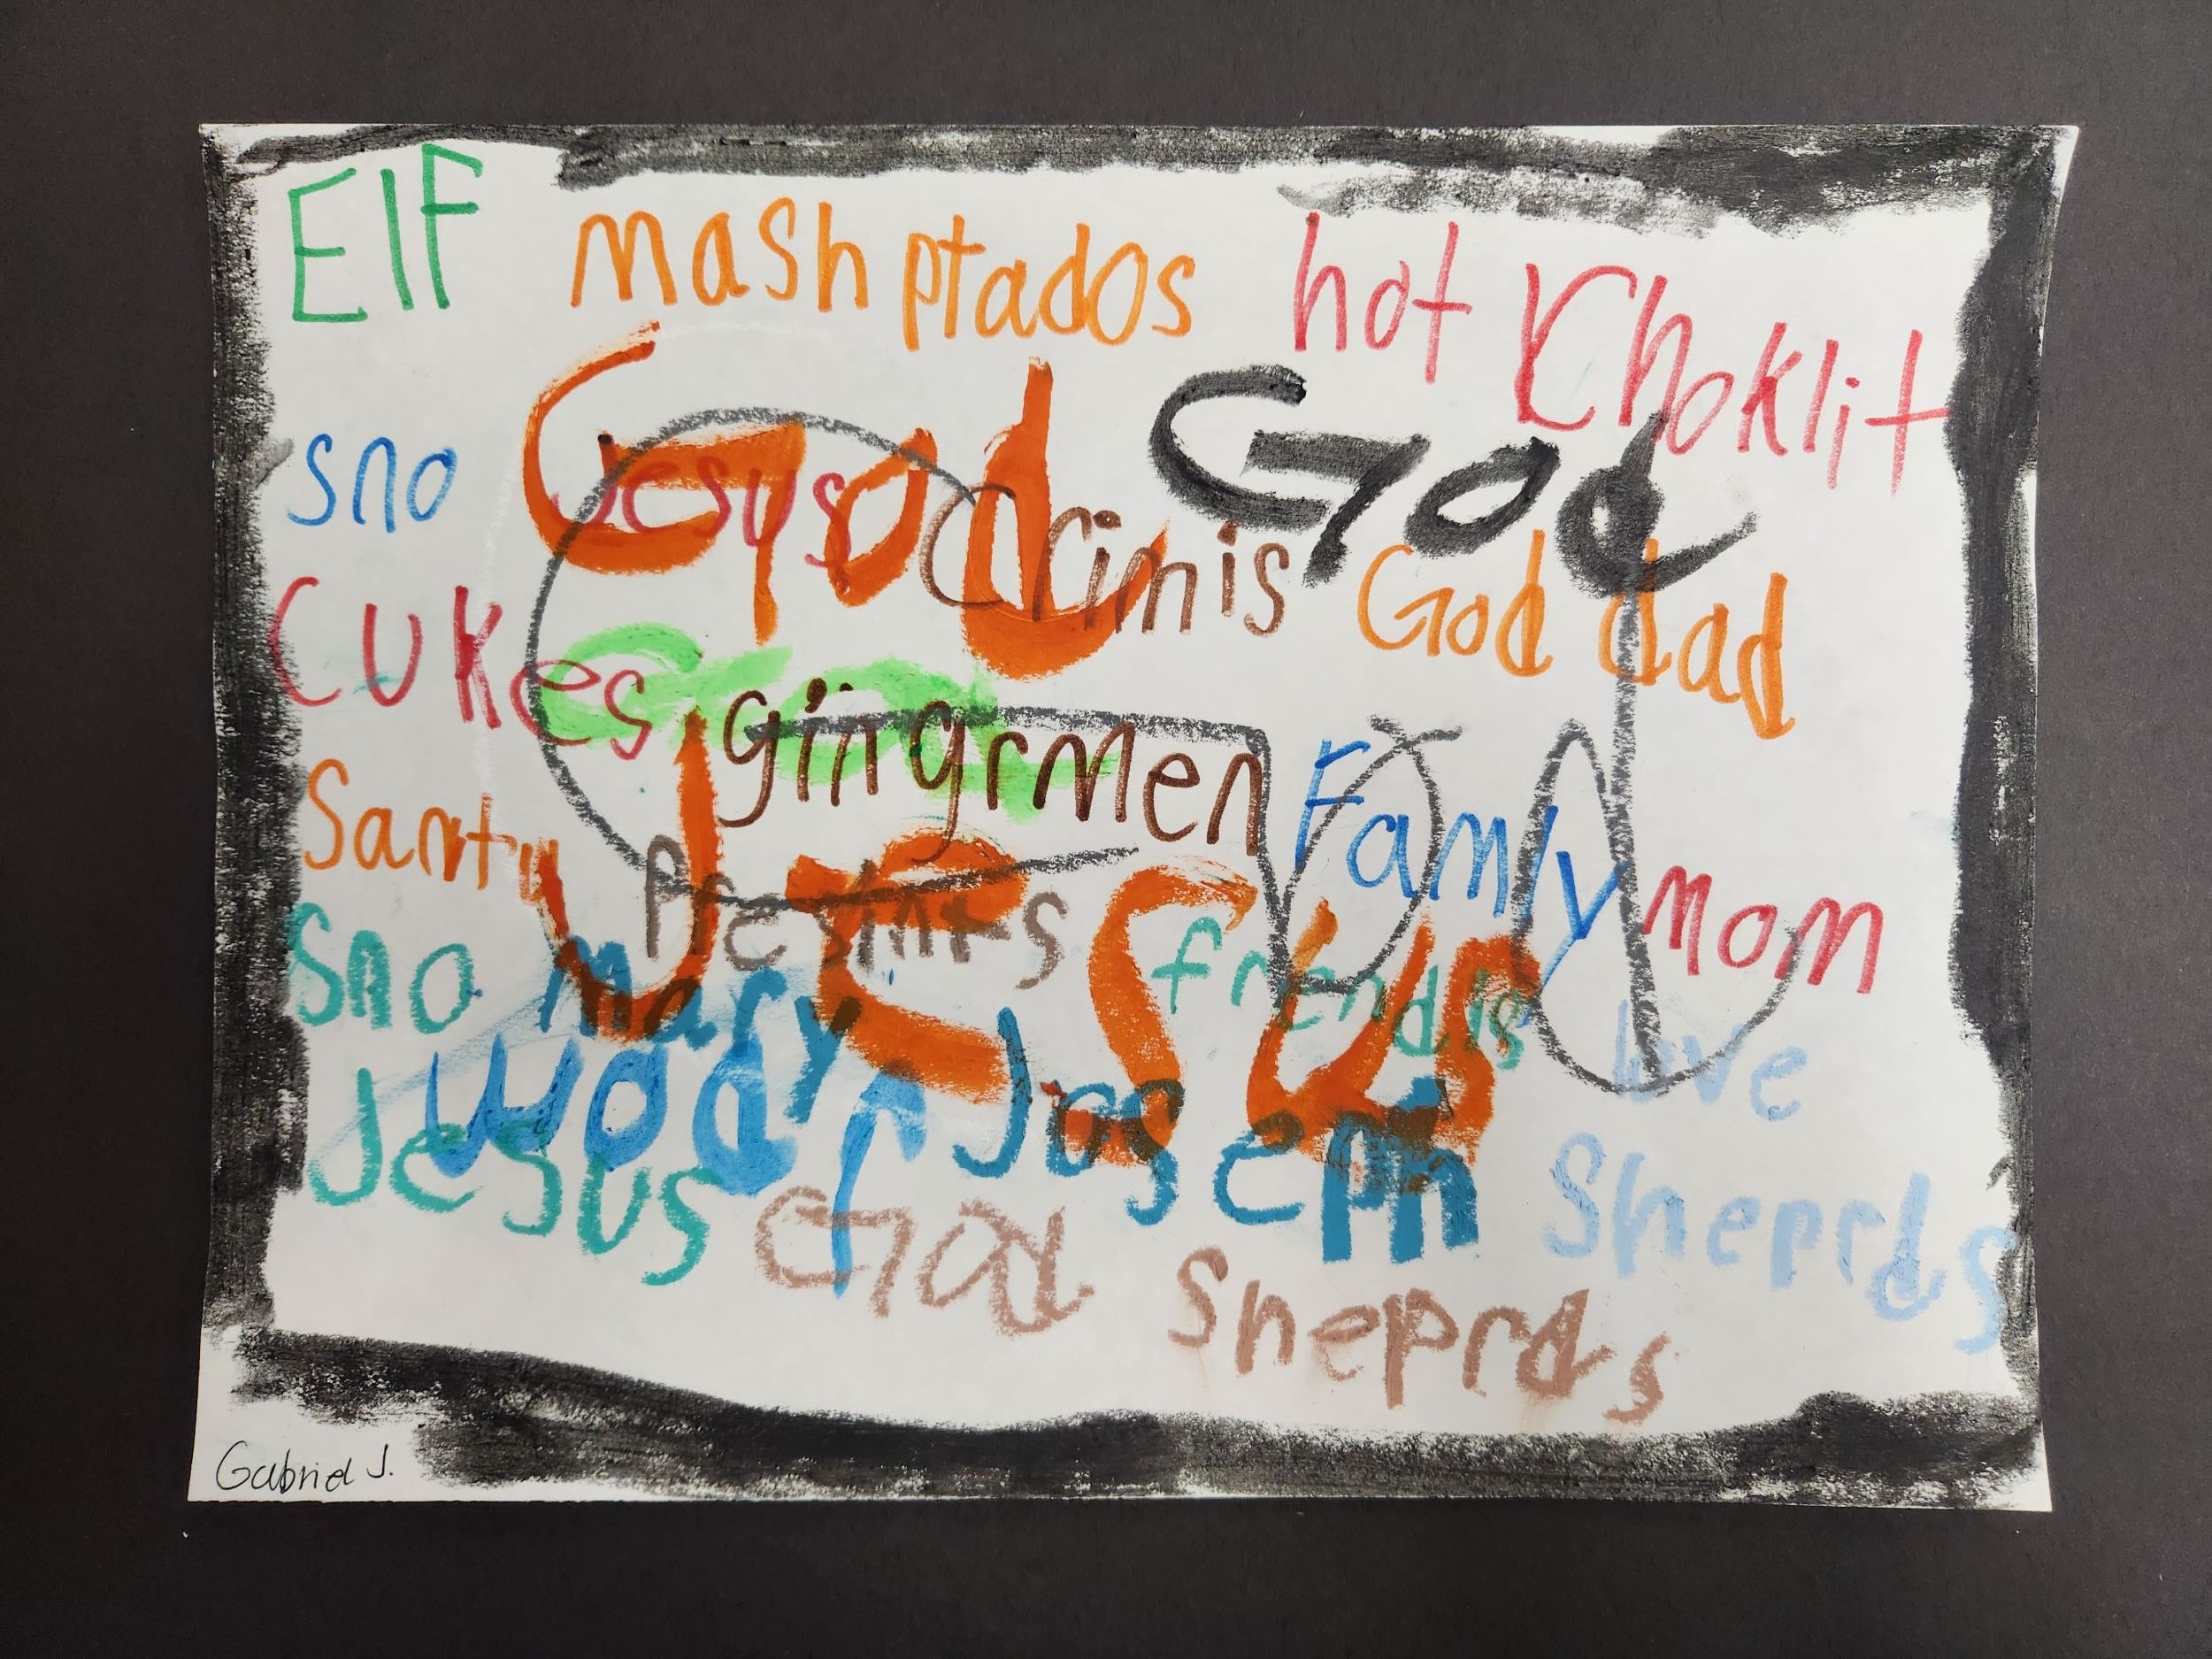 Elf mash ptados hot Khoklit
God God
sno Jesus Crimis God dad
cukes God
gingrmen
Santu Famly mom
Presints
Sno mary Jesus frendls love
water Joseph
Jesus God Sheprds
Sheprds
God
Gabriel J.